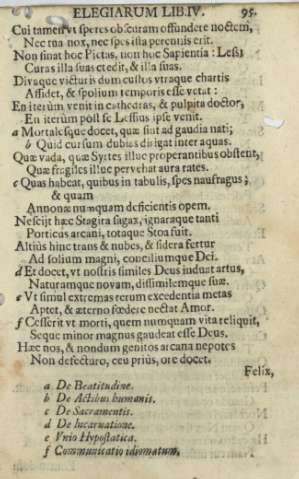 ELEGIARUM LIB.IV. 95.
Cui tamen vt speres obscuram offundere noctem,
Nec tua nox, nec spes illa perennis erit.
Non sinat hoc Pietas, non hoc Sapientia: Lessi
Curas illa suas credit, & illa suas.
Divaque victuris dum custos vtraque chartis
Assidet, & spolium temporis esse vetat:
En iterùm venit in cathedras, & pulpita doctor,
En iterùm post se Lessius ipse venit.
a Mortalesque docet, quæ sint ad gaudia nati;
b Quid cursum dubias dirigat inter aquas.
Quæ vada, quæ Syrtes illuc properantibus obstent,
Quæ fragiles illuc pervehat aura rates.
c Quas habeat, quibus in tabulis, spes naufragus;
& quam
Annonæ numquam deficientis opem.
Nescijt hæc Stagira sagax, ignaraque tanti
Porticus arcani, totaque Stoa fuit.
Altiùs hinc trans & nubes, & sidera fertur
Ad solium magni, conciliumque Dei.
d Et docet, vt nostris similes Deus induat artus,
Naturamque novam, dissimilemque suæ.
e Vt simul extremas rerum excedentia metas
Aptet, & æterno fœdere nectat Amor.
f Cesserit vt morti, quem numquam vita reliquit,
Seque minor magnus gaudeat esse Deus.
Hæc nos, & nondum genitos arcana nepotes
Non defecturo, ceu priùs, ore docet.
Felix,
a De Beatitudine.
b De Actibus humanis.
c De Sacramentis.
d De Incarnatione.
e Vnio Hypostatica.
f Communicatio idiomatum.